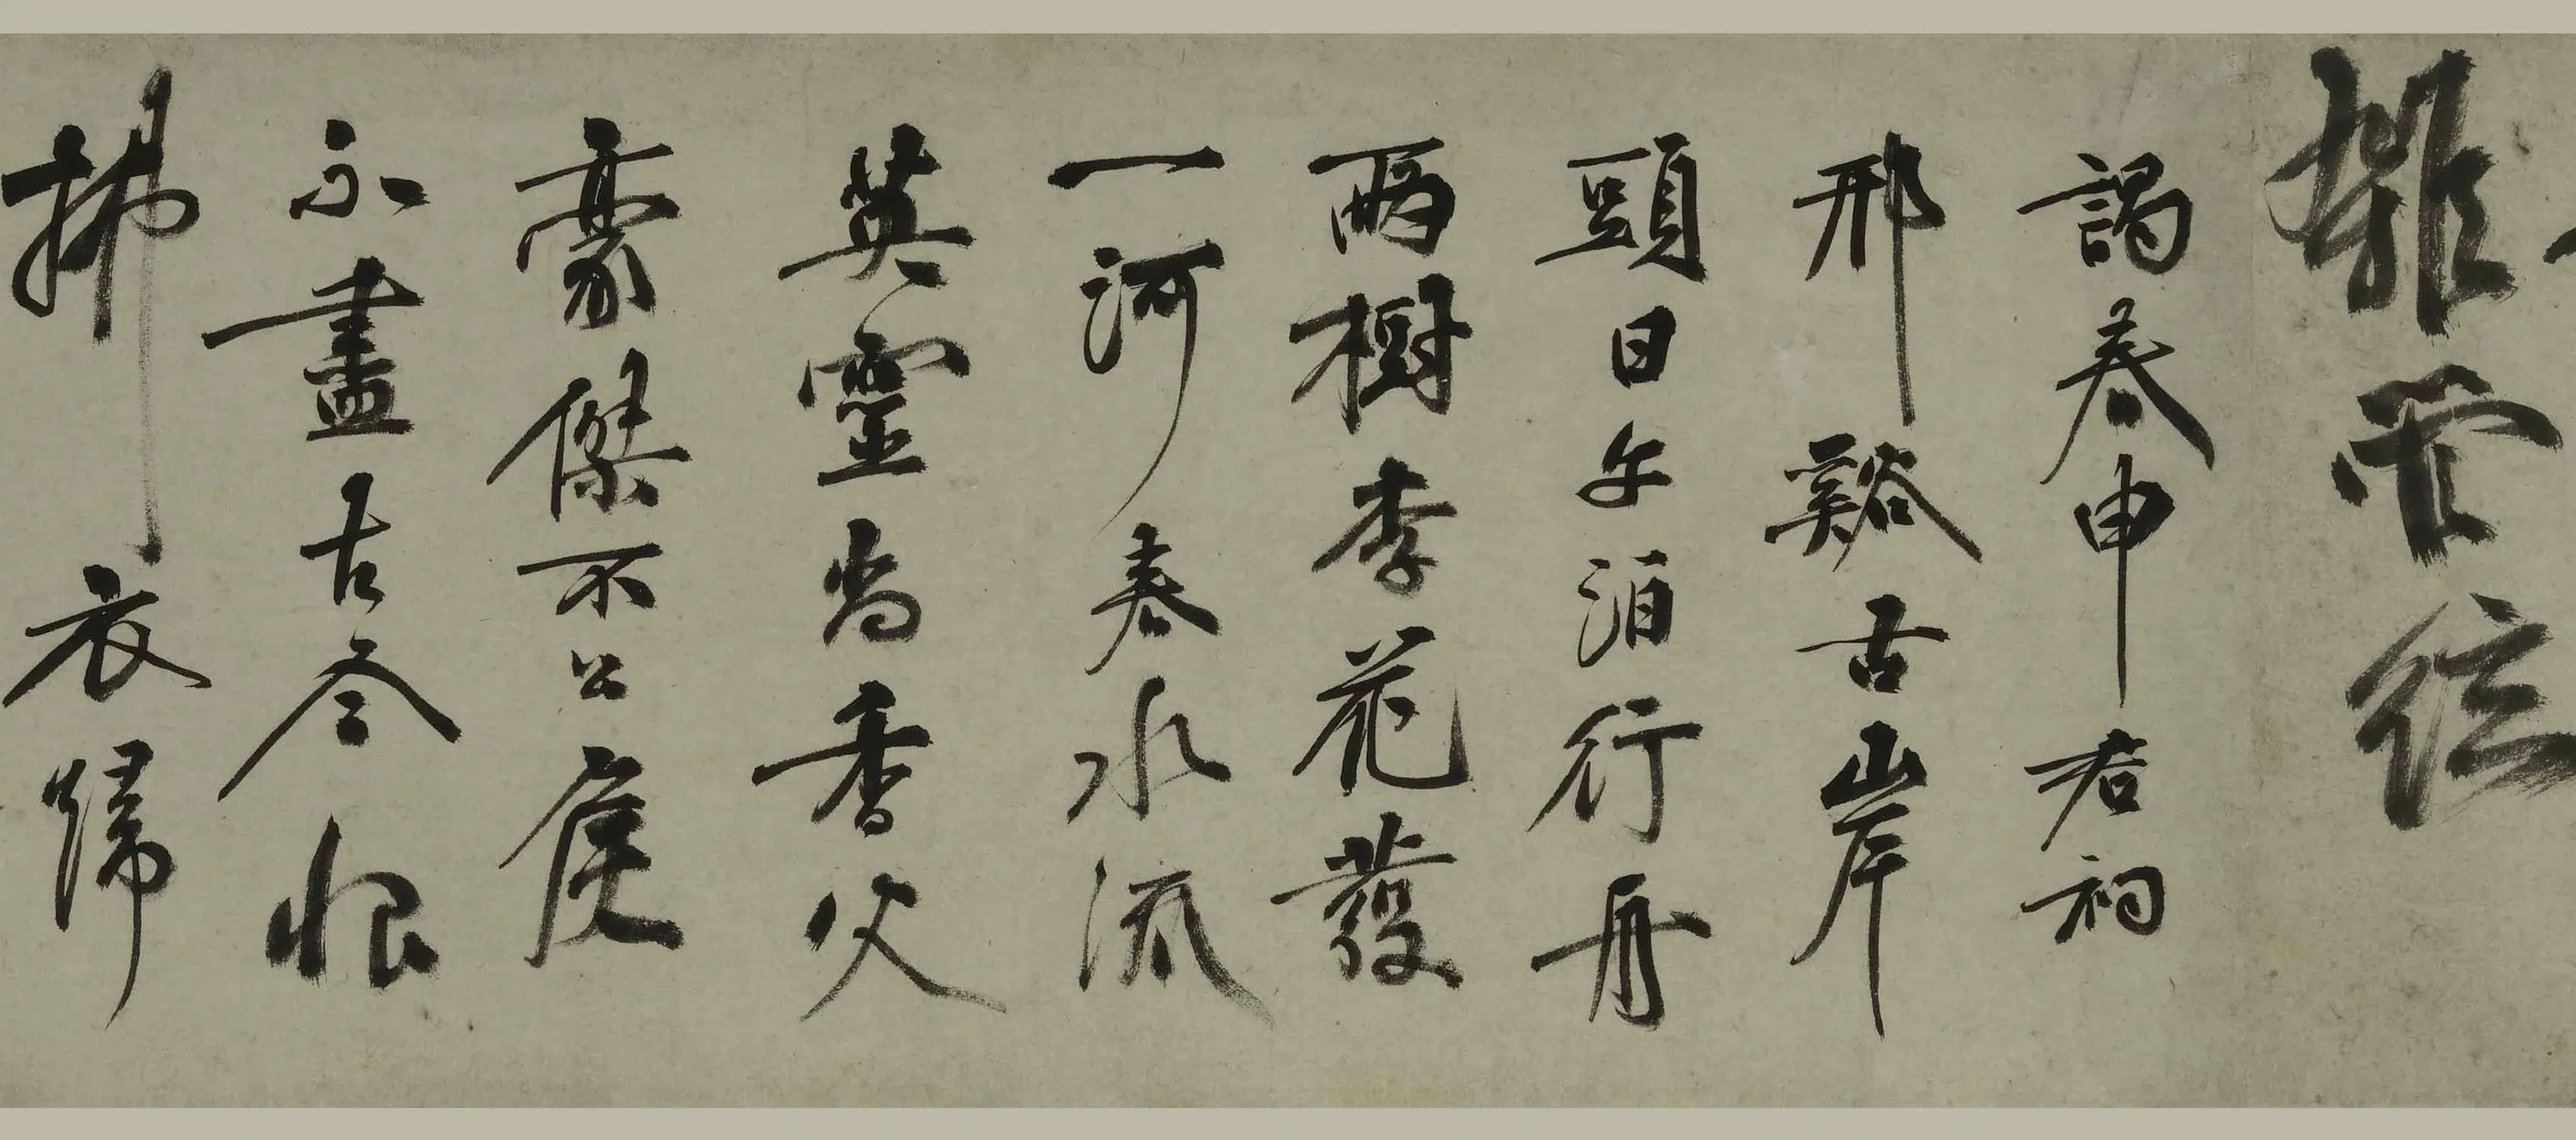 謁春申君祠
邢谿古岸
頭日午泊行舟
兩樹李花發
一河春水流
英靈尚香火
豪傑不公侯
不盡古今恨
拂衣歸